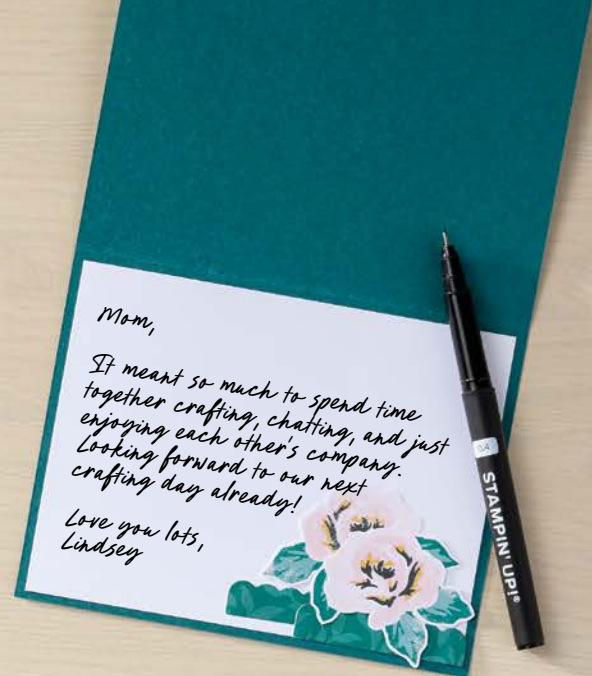 Mom,
It meant so much to spend time
together crafting, chatting, and just
enjoying each other's company.
Looking forward to our next
crafting day already!
Love you lots,
Lindsey
0.4
STAMPIN' UP!®